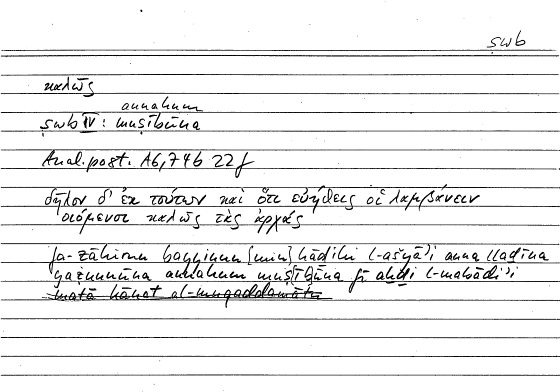 ṣwb
καλῶς
annahum
ṣwb IV: muṣībūna
Anal. post. A6, 74b 22f
δῆλον δ' ἐκ τούτων καὶ ὅτι εὐήθεις οἱ λαμβάνειν
οἰόμενοι καλῶς τὰς ἀρχάς
fa-ẓāhirun bayyinun [min] hāḏihi l-ašyāʾi anna llaḏīna
yaẓunnūna annahum muṣībūna fī aḫḏi l-mabādiʾi
matā kānat al-muqaddamātu